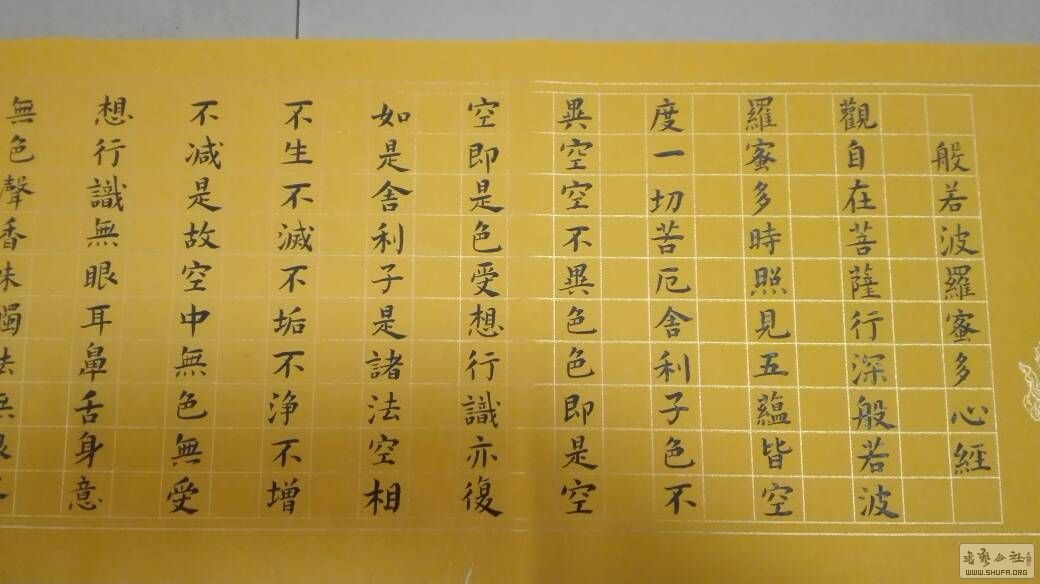 般若波羅蜜多心經
觀自在菩薩行深般若波
羅蜜多時照見五蘊皆空
度一切苦厄舍利子色不
異空空不異色色即是空
空即是色受想行識亦復
如是舍利子是諸法空相
不生不滅不垢不淨不增
不減是故空中無色無受
想行識無眼耳鼻舌身意
無色聲香味觸法無
WWW.SHUFA.ORG